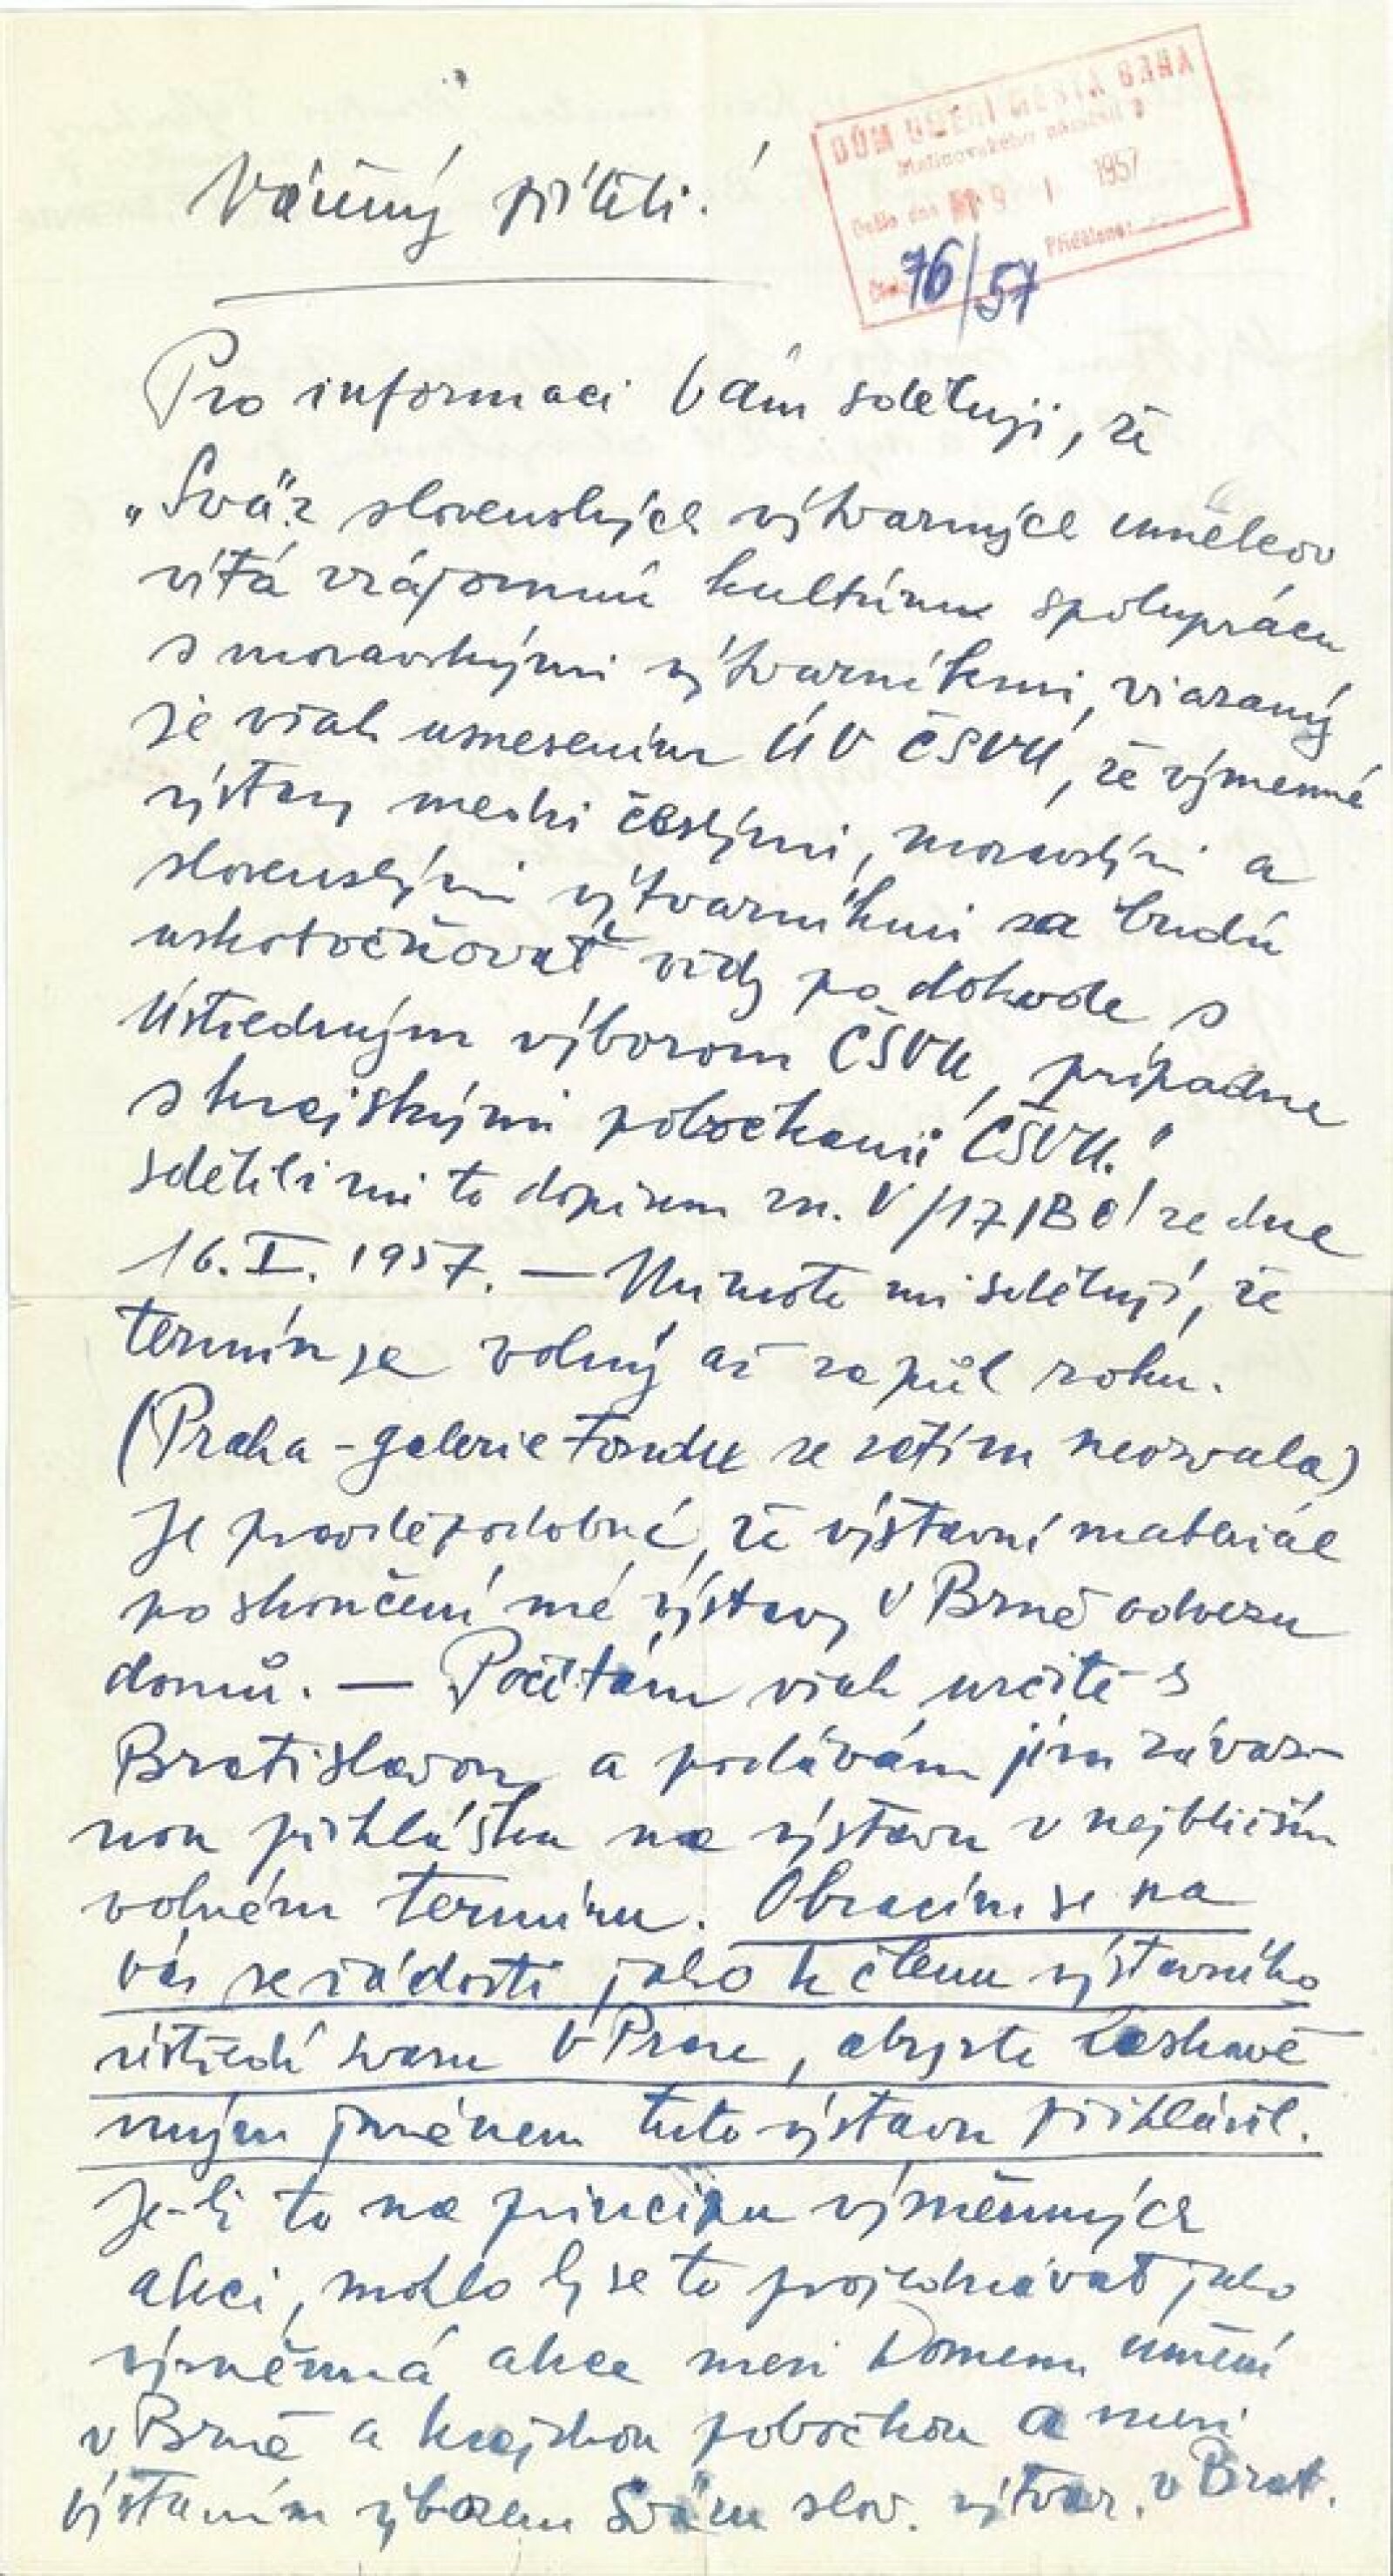 DŮM UMĚNÍ MĚSTA BRNA
Malinovského náměstí 2
Došlo dne 19 I 1957
Přiděleno:
Číslo 76/57
Vážený příteli!
Pro informaci Vám sděluji, že
„Sväz slovenských výtvarných umělcov
víta vzájomnú kultúrnu spoluprácu
s moravskými výtvarníkmi, viazaný
je však usnesením ÚV ČSVU, že výmenné
výstavy medzi českými, moravskými a
slovenskými výtvarníkmi sa budú
uskutočňovať vždy po dohode s
Ústredným výborom ČSVU, prípadne
s krajskými pobočkami ČSVU."
Sdělili mi to dopisem zn. V/17/Bč/ ze dne
16. I. 1957. — Mimoto mi sdělují, že
termín je volný až za půl roku.
(Praha - galerie Fondu se zatím neozvala)
Je pravděpodobné, že výstavní materiál
po skončení mé výstavy v Brně odvezu
domů. — Počítám však určitě s
Bratislavou a podávám jim závaz-
nou přihlášku na výstavu v nejbližším
volném termínu. Obracím se na
Vás se žádostí jako k členu výstavního
ústředí svazu v Praze, abyste laskavě
mým jménem tuto výstavu přihlásil.
Je-li to na principu výměnných
akcí, mohlo by se to projednávat jako
výměnná akce mezi Domem umění
v Brně a krajskou pobočkou a mezi
výstavním výborem Sväzu slov. výtvar. v Brat.